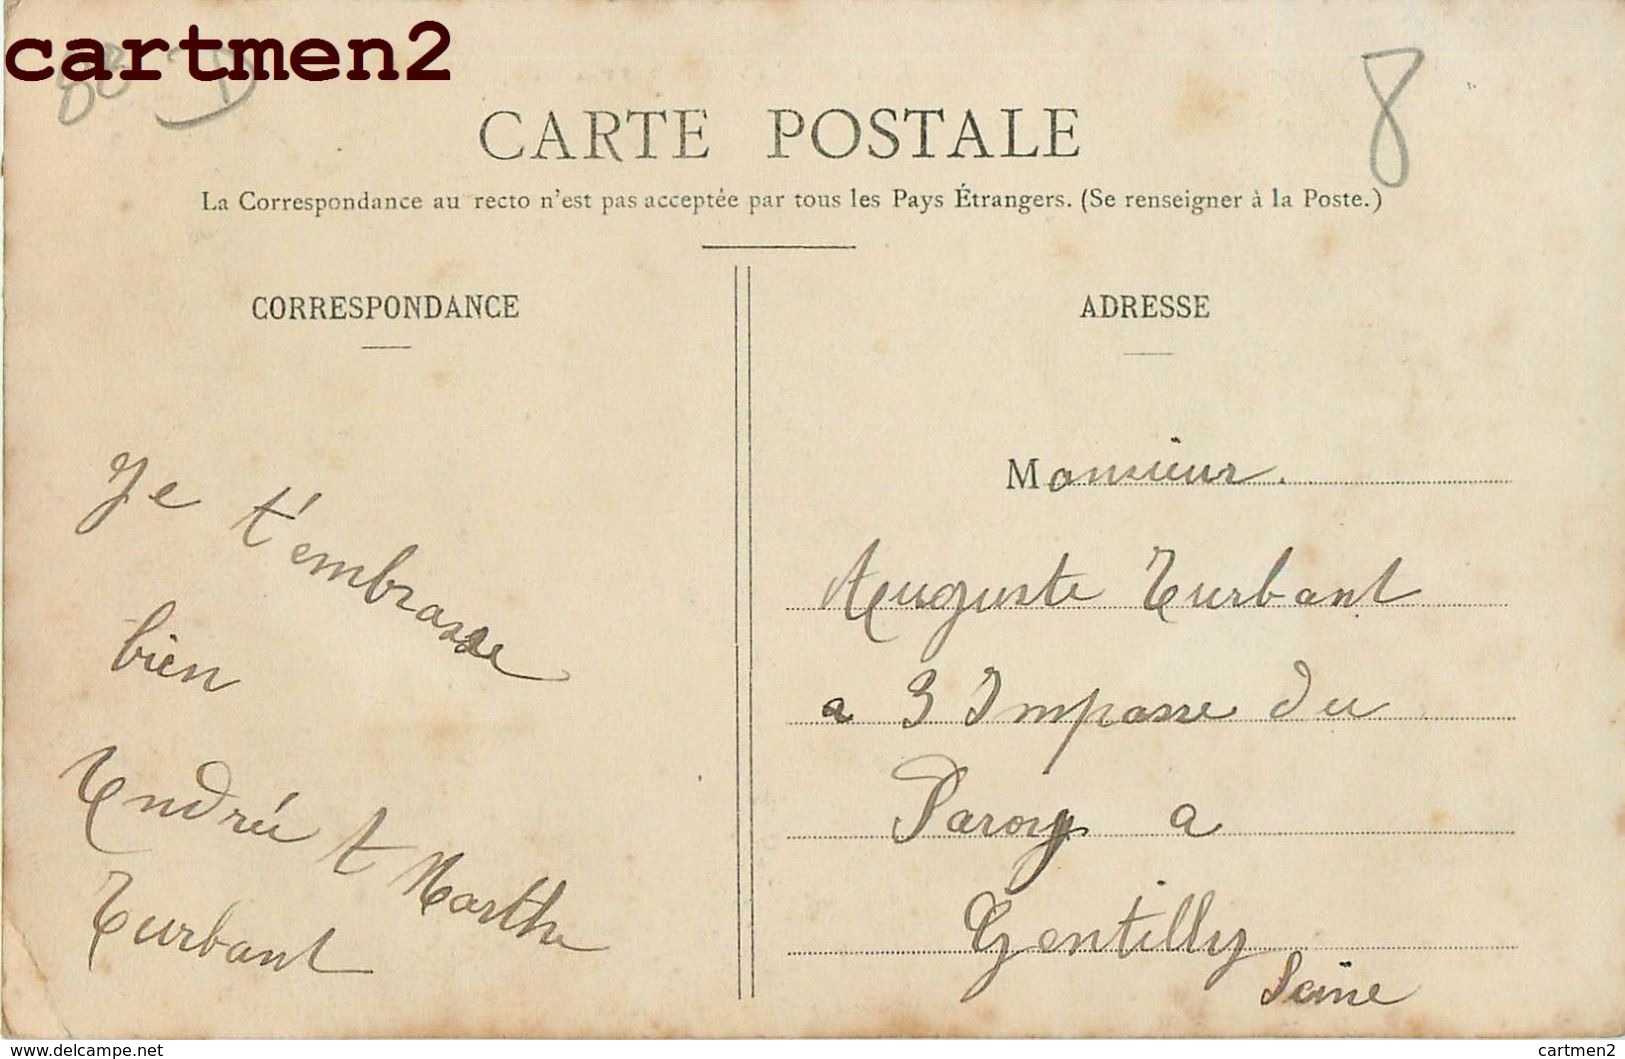 cartmen2
88 D
8
CARTE POSTALE
La Correspondance au recto n'est pas acceptée par tous les Pays Étrangers. (Se renseigner à la Poste.)
CORRESPONDANCE
Je t'embrasse
bien
Andrée et Marthe
Turbant
ADRESSE
Monsieur.
Auguste Turbant
a 3 Impasse du
Paroy a
Gentilly
Seine
www.delcampe.net
cartmen2